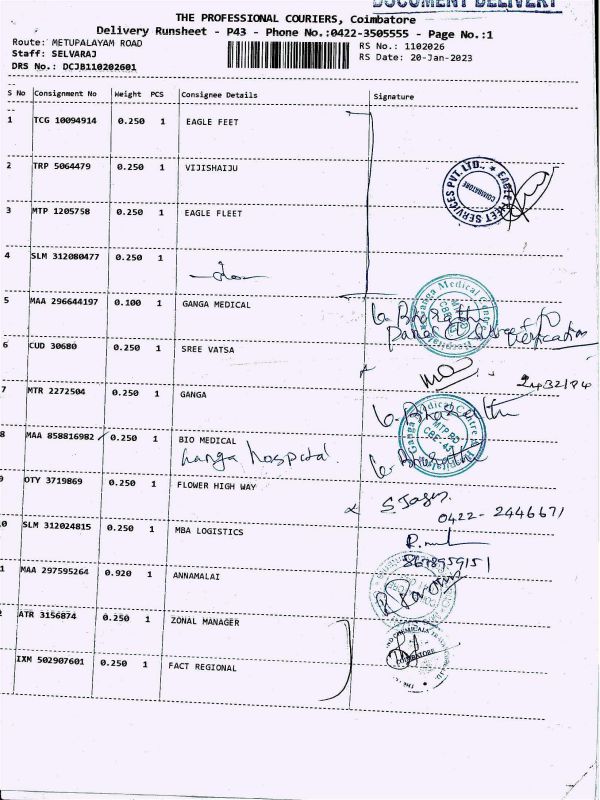 DOCUMENT DELIVERY
THE PROFESSIONAL COURIERS, Coimbatore
Delivery Runsheet - P43 - Phone No.:0422-3505555 - Page No.:1
Route: METUPALAYAM ROAD
Staff: SELVARAJ
DRS No.: DCJB110202601
RS No.: 1102026
RS Date: 20-Jan-2023
S No Consignment No Weight PCS Consignee Details Signature
1 TCG 10094914 0.250 1 EAGLE FEET
2 TRP 5064479 0.250 1 VIJISHAIJU
EAGLE FLEET SERVICES PVT. LTD.,
COIMBATORE
3 MTP 1205758 0.250 1 EAGLE FLEET
4 SLM 312080477 0.250 1
5 MAA 296644197 0.100 1 GANGA MEDICAL
Ganga Medical
MTP RD
CBE-43
G. Bharathi
6 CUD 30680 0.250 1 SREE VATSA
2432184
7 MTR 2272504 0.250 1 GANGA
G. Bharathi
Ganga Medical Centre
MTP RD
CBE-43
8 MAA 858816982 0.250 1 BIO MEDICAL
Ganga hospital
G. Bharathi
9 OTY 3719869 0.250 1 FLOWER HIGH WAY
0422-2446671
0 SLM 312024815 0.250 1 MBA LOGISTICS
8678959151
1 MAA 297595264 0.920 1 ANNAMALAI
2 ATR 3156874 0.250 1 ZONAL MANAGER
COIMBATORE
IXM 502907601 0.250 1 FACT REGIONAL